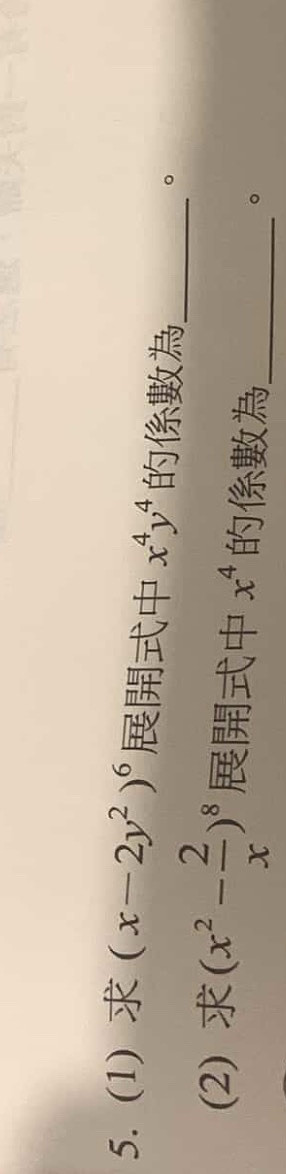 5. (1) 求 (x−2y²)⁶ 展開式中 x⁴y⁴ 的係數為______。
(2) 求 (x²−2/x)⁸ 展開式中 x⁴ 的係數為______。